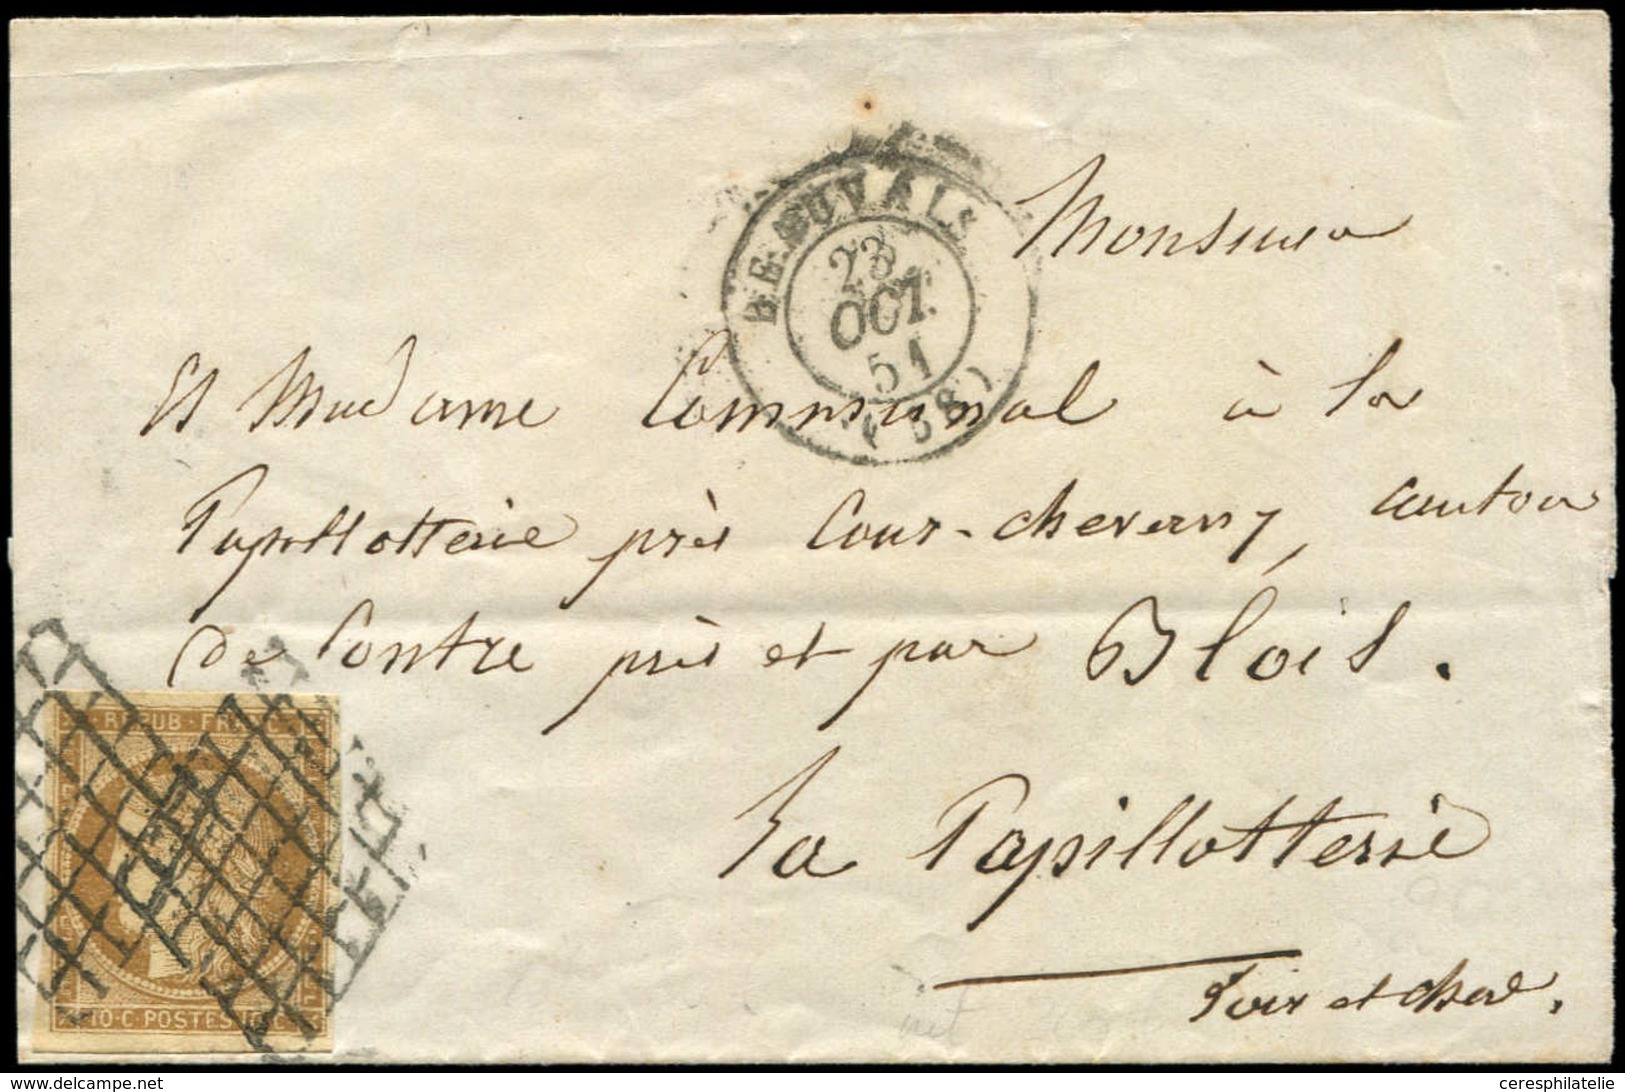 BEAUVAIS
23
OCT.
51
(58)
Monsieur
Et Madame Communal à la
Papillotterie près Cour-cheverny, canton
de Contre près et par Blois.
La Papillotterie
Loir et cher.
REPUB·FRANC
10·C·POSTES·10·C
www.delcampe.net
ceresphilatelie